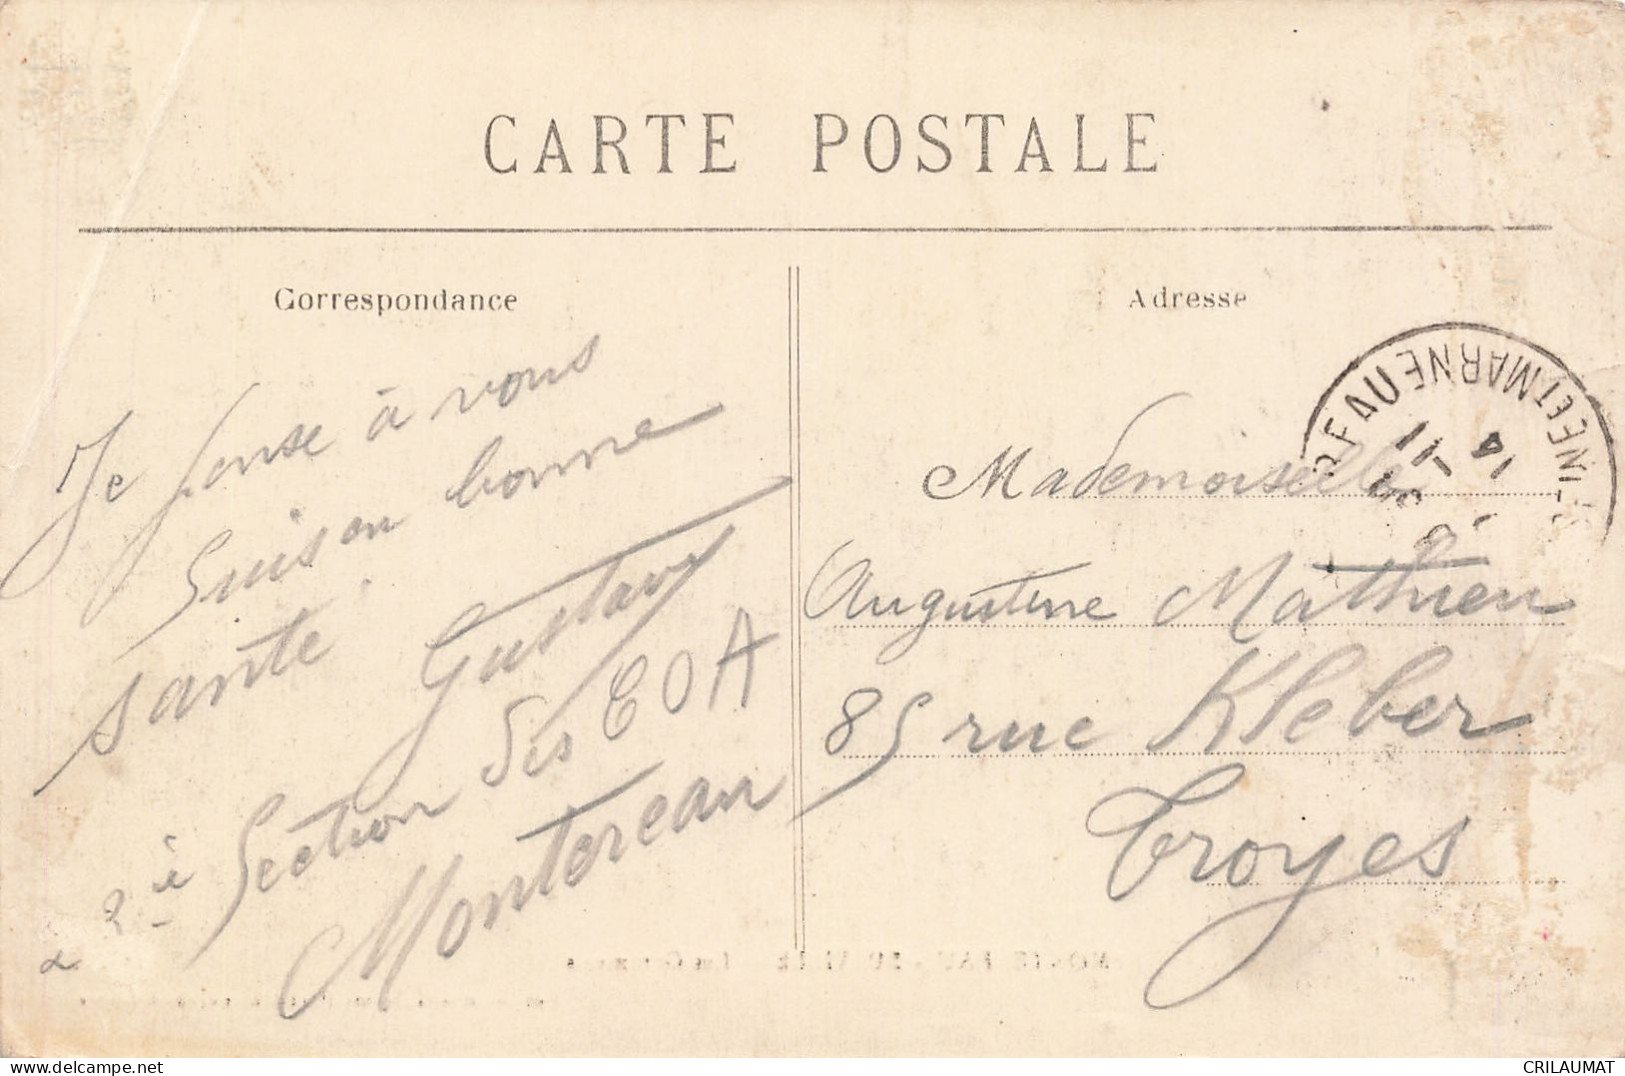 CARTE POSTALE
Correspondance
Je pense à vous
Suis en bonne
santé.
Gustave
à 2ie Section Sis EOA
Montereau
Adresse
Mademoiselle
Augustine Mathieu
85 rue Kleber
Troyes
FAU
SEINE ET MARNE
11
14
CRILAUMAT